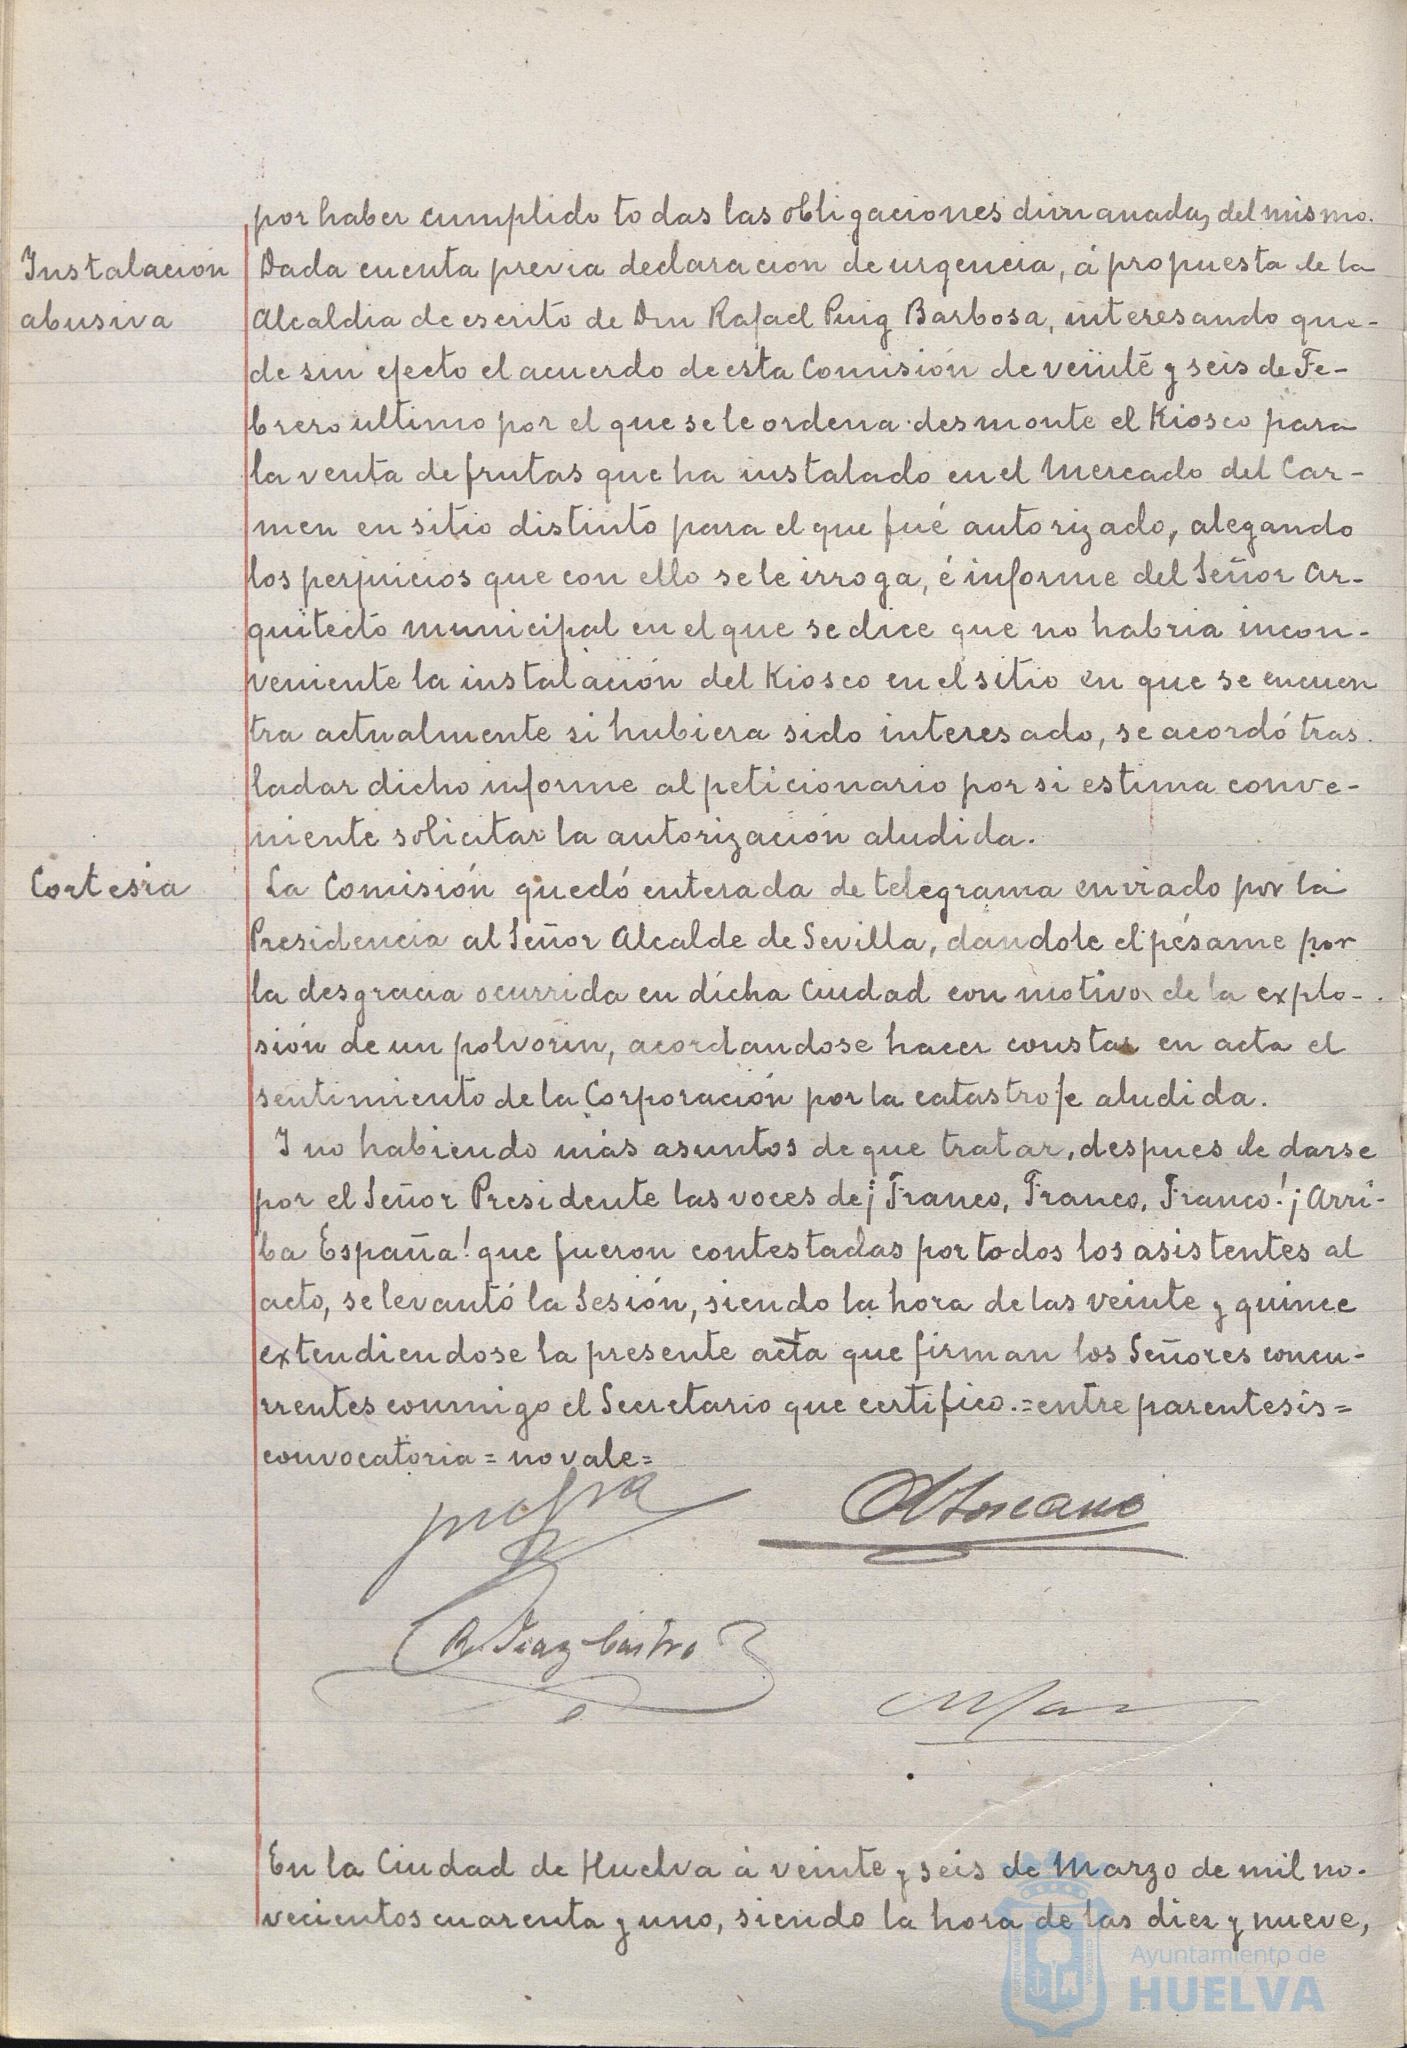 por haber cumplido todas las obligaciones dimanadas del mismo.
Instalación abusiva
Dada cuenta previa declaracion de urgencia, á propuesta de la
Alcaldia de escrito de Don Rafael Puig Barbosa, interesando que-
de sin efecto el acuerdo de esta Comisión de veinte y seis de Fe-
brero ultimo por el que se le ordena desmonte el Kiosco para
la venta de frutas que ha instalado en el Mercado del Car-
men en sitio distinto para el que fué autorizado, alegando
los perjuicios que con ello se le irroga, é informe del Señor Ar-
quitecto municipal en el que se dice que no habria incon-
veniente la instalación del Kiosco en el sitio en que se encuen
tra actualmente si hubiera sido interesado, se acordó tras
ladar dicho informe al peticionario por si estima conve-
niente solicitar la autorización aludida.
Cortesia
La Comisión quedó enterada de telegrama enviado por la
Presidencia al Señor Alcalde de Sevilla, dandole el pésame por
la desgracia ocurrida en dicha Ciudad con motivo de la explo-
sión de un polvorin, acordandose hacer constar en acta el
sentimiento de la Corporación por la catastrofe aludida.
Y no habiendo más asuntos de que tratar, despues de darse
por el Señor Presidente las voces de ¡Franco, Franco, Franco! ¡Arri-
ba España! que fueron contestadas por todos los asistentes al
acto, se levantó la Sesión, siendo la hora de las veinte y quince
extendiendose la presente acta que firman los Señores concu-
rrentes conmigo el Secretario que certifico.=entre parentesis=
convocatoria = no vale=
R. Diaz Castro
En la Ciudad de Huelva á veinte y seis de Marzo de mil no-
vecientos cuarenta y uno, siendo la hora de las diez y nueve,
Ayuntamiento de
HUELVA